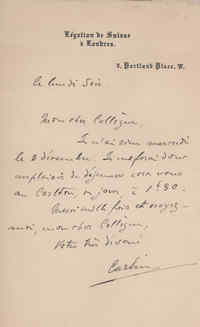 Légation de Suisse
à Londres.
3, Portland Place, W.
ce lundi soir
Mon cher Collègue,
Je n'ai rien mercredi
le 2 décembre. Je me ferai donc
un plaisir de déjeuner avec vous
au Carlton, ce jour à 1 30.
Merci mille fois et croyez-
moi, mon cher Collègue,
Votre très dévoué
Carlin